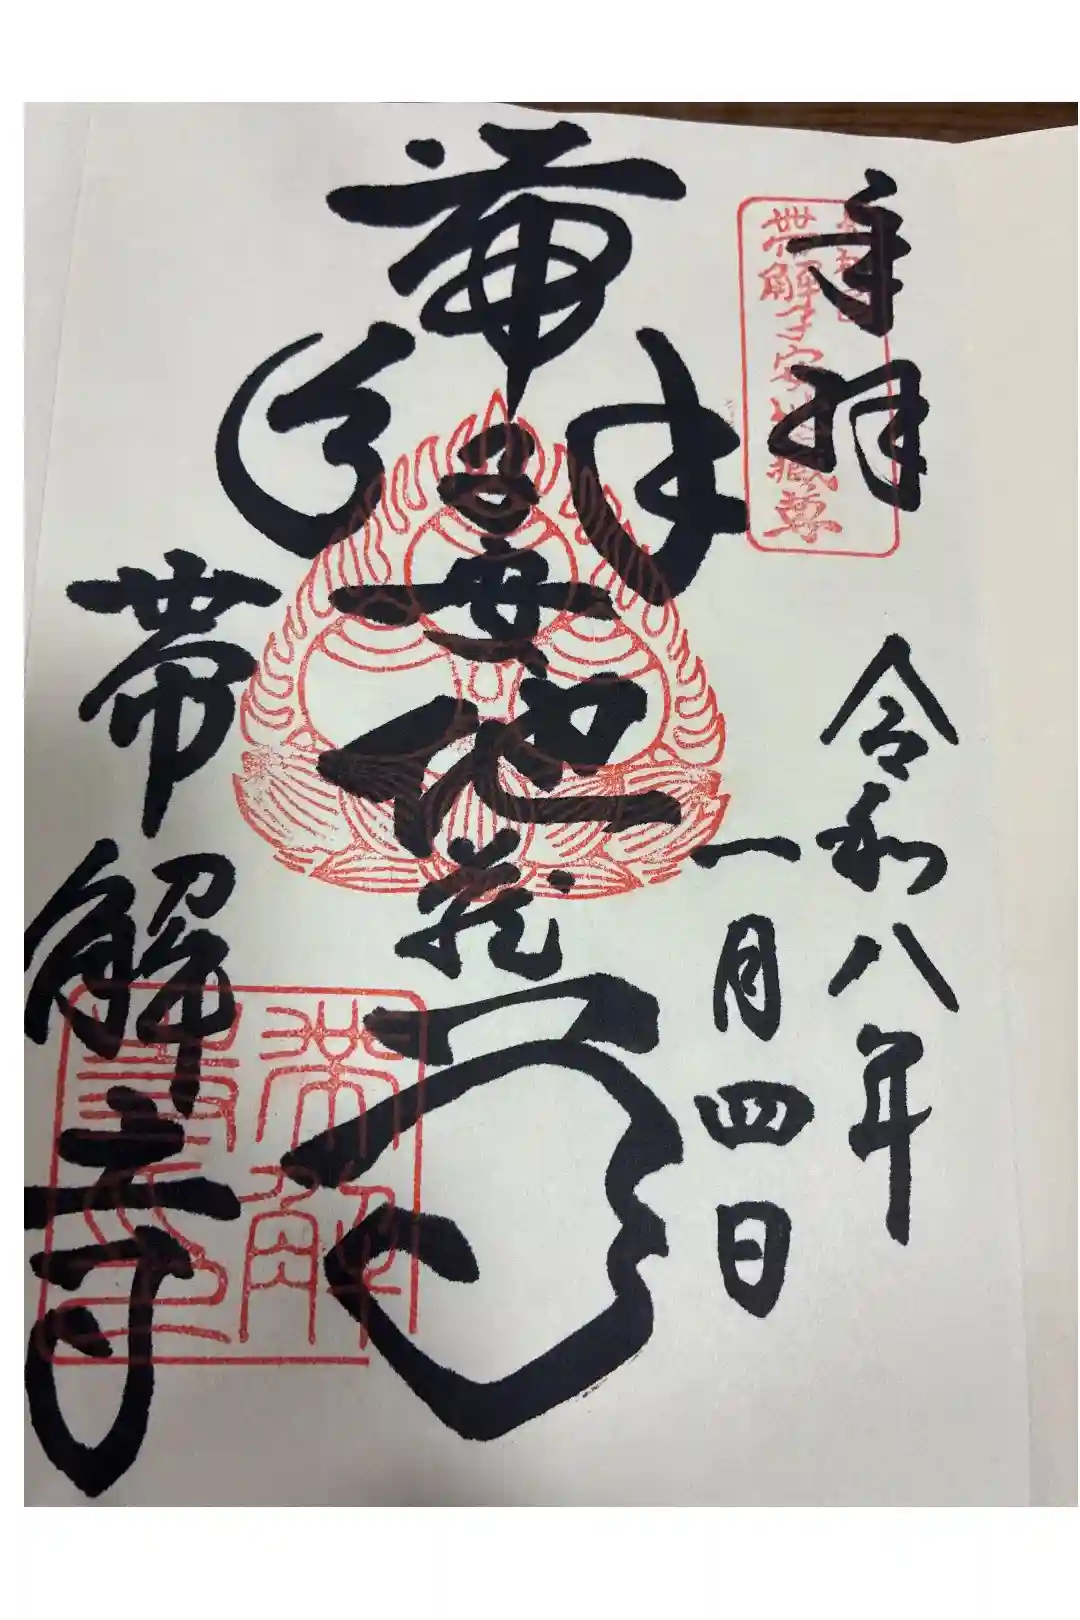 奉拝
帯解子安地蔵尊
令和八年
一月四日
帯解
子安地蔵
帯解寺
帯解